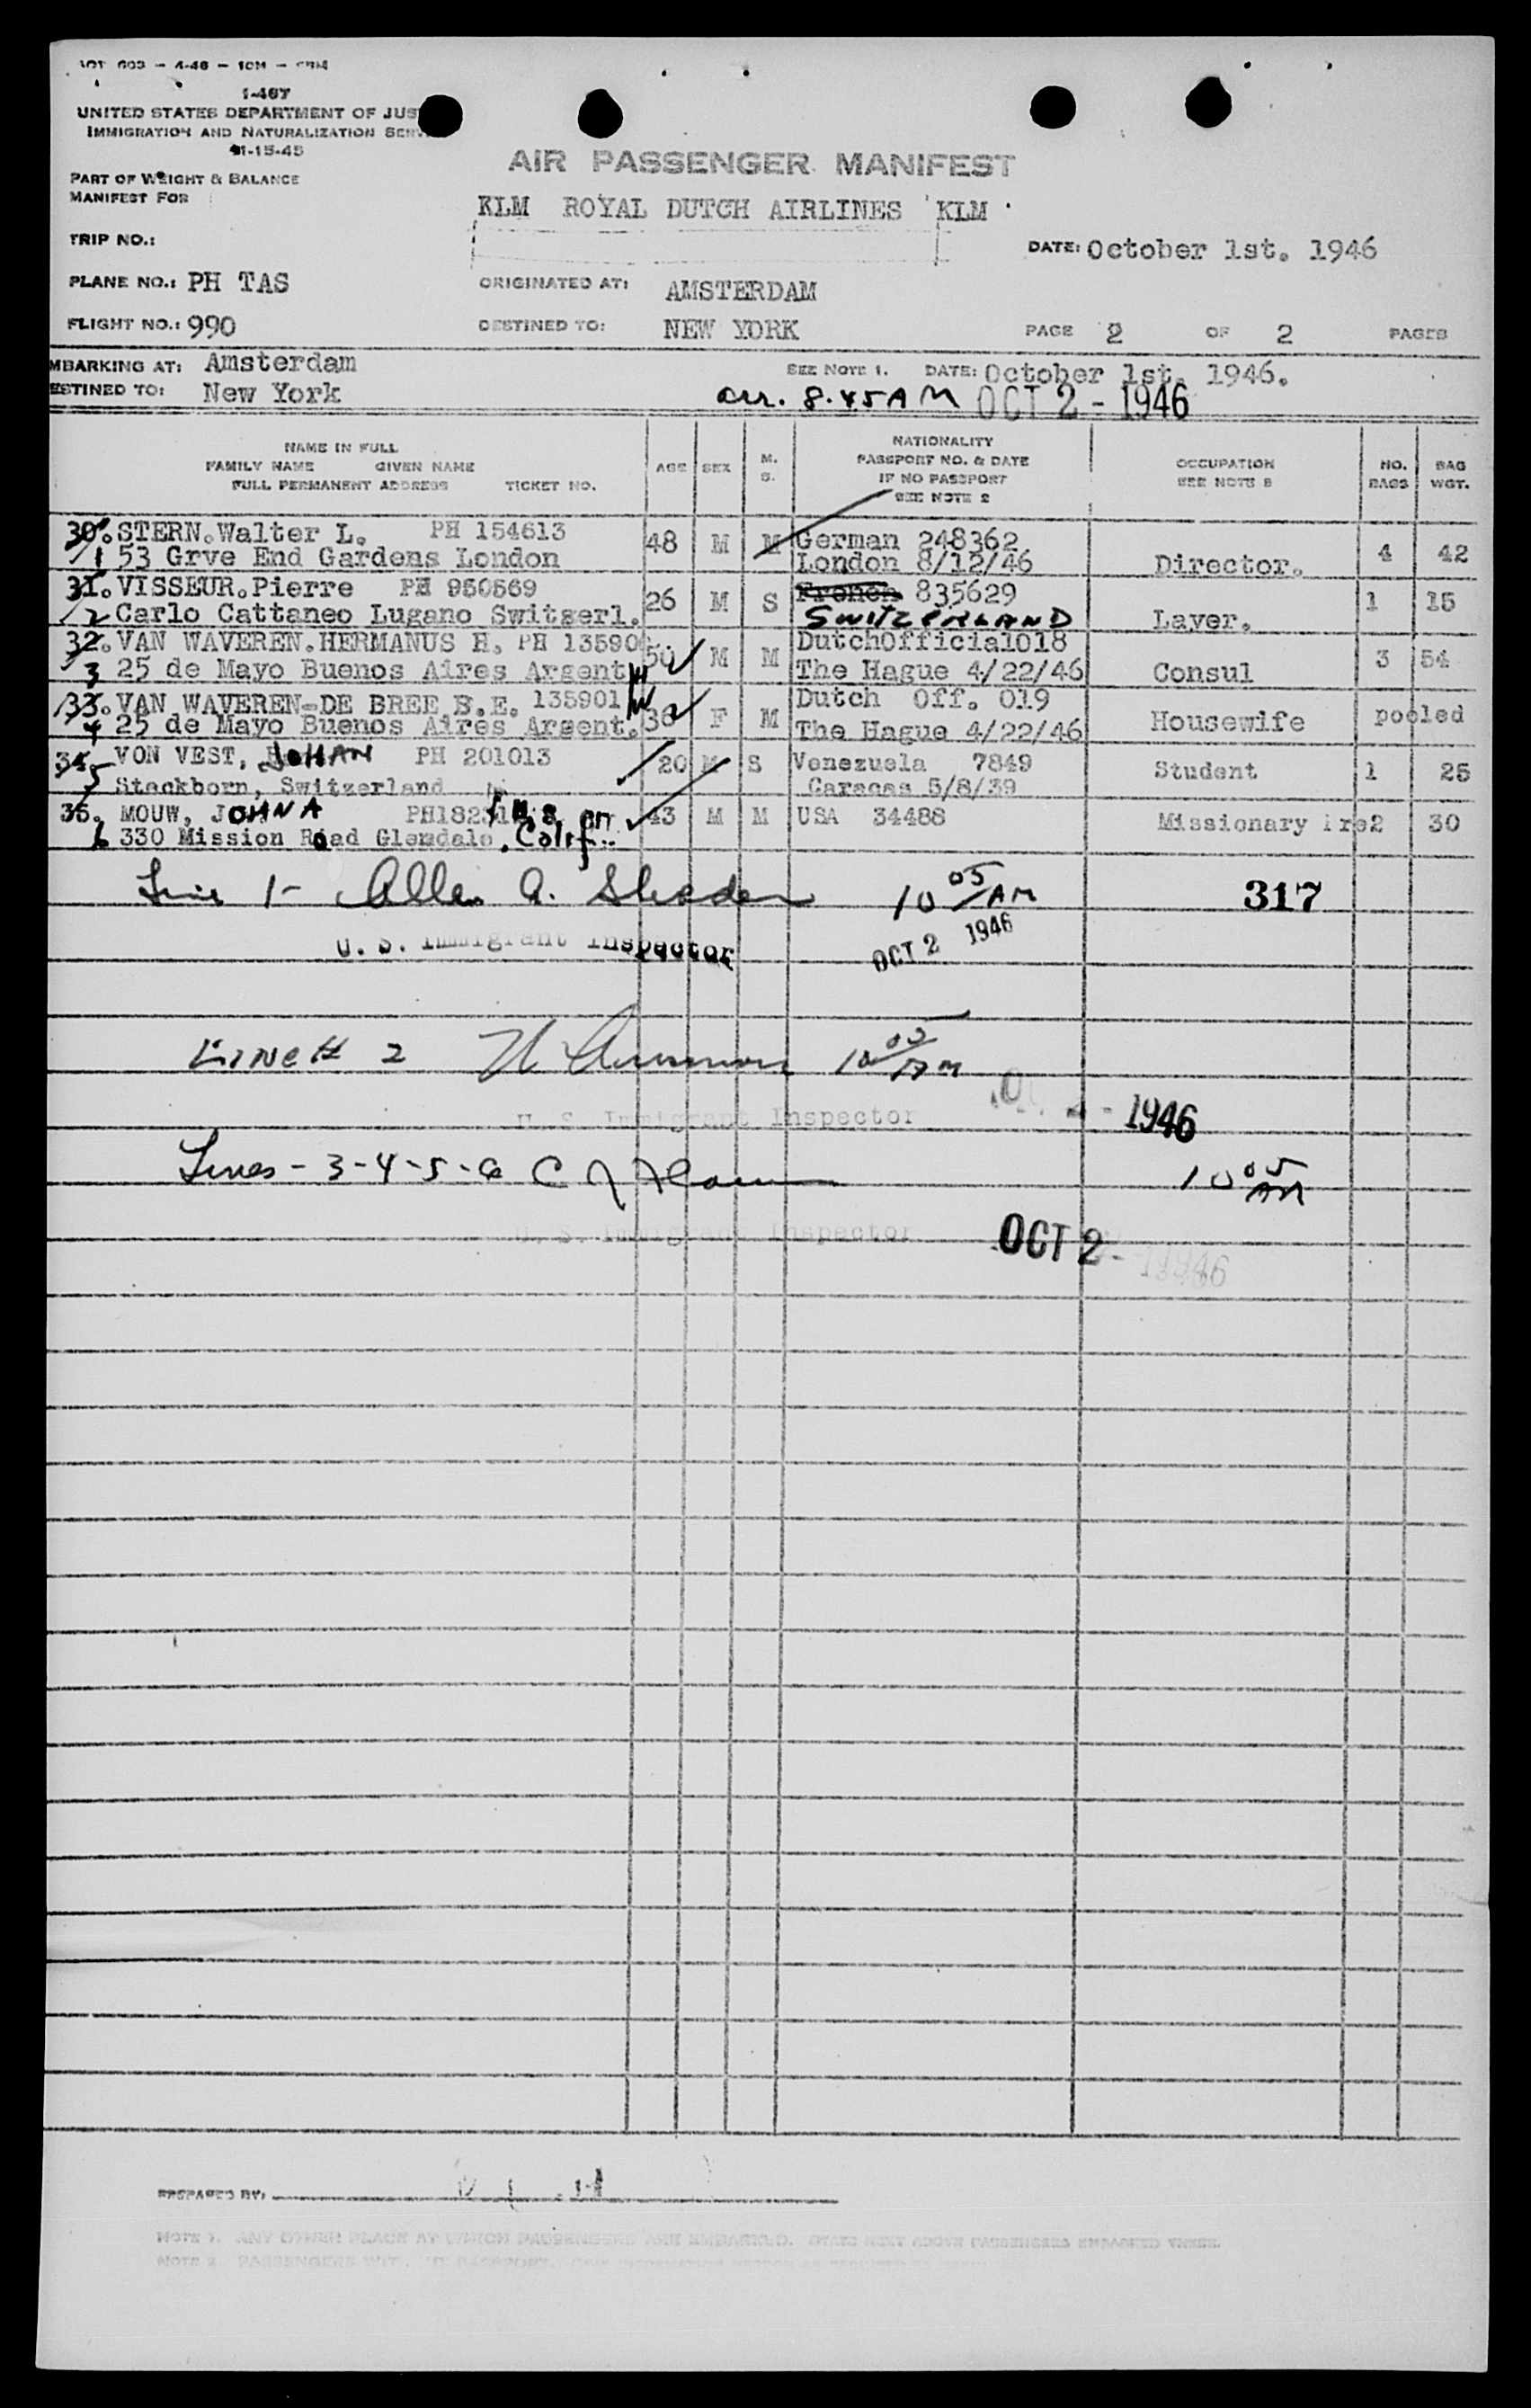 I-467
UNITED STATES DEPARTMENT OF JUS
IMMIGRATION AND NATURALIZATION SERV
11-15-45
PART OF WEIGHT & BALANCE
MANIFEST FOR
AIR PASSENGER MANIFEST
KLM ROYAL DUTCH AIRLINES KLM
TRIP NO.:
DATE: October 1st. 1946
PLANE NO.: PH TAS ORIGINATED AT: AMSTERDAM
FLIGHT NO.: 990 DESTINED TO: NEW YORK PAGE 2 OF 2 PAGES
MBARKING AT: Amsterdam SEE NOTE 1. DATE: October 1st. 1946.
ESTINED TO: New York arr. 8.45 AM OCT 2 - 1946
NAME IN FULL
FAMILY NAME GIVEN NAME
FULL PERMANENT ADDRESS TICKET NO.
AGE SEX M. S.
NATIONALITY
PASSPORT NO. & DATE
IF NO PASSPORT
SEE NOTE 2
OCCUPATION
SEE NOTE 3
NO. BAGS
BAG WGT.
30. STERN. Walter L. PH 154613 48 M M German 248362
1 53 Grve End Gardens London London 8/12/46 Director. 4 42
31. VISSEUR. Pierre PH 950569 26 M S French 835629 1 15
2 Carlo Cattaneo Lugano Switserl. SWITZERLAND Layer.
32. VAN WAVEREN. HERMANUS H. PH 13590 50 M M DutchOfficial018
3 25 de Mayo Buenos Aires Argent The Hague 4/22/46 Consul 3 54
33. VAN WAVEREN-DE BREE B.E. 135901 36 F M Dutch Off. 019
4 25 de Mayo Buenos Aires Argent. The Hague 4/22/46 Housewife pooled
34. VON VEST, JOHAN PH 201013 20 M S Venezuela 7849
5 Steckborn, Switzerland Caracas 5/8/39 Student 1 25
35. MOUW, JOHN A 43 M M USA 34488
6 330 Mission Road Glendale, Calif. Missionary 2 30
Line 1- Allen A. 10 05 AM 317
U. S. Immigrant Inspector OCT 2 1946
Line # 2 10 05 AM
U. S. Immigrant Inspector 1946
Lines - 3-4-5-6 10 05 AM
U. S. Immigrant Inspector OCT 2 - 1946
PREPARED BY:
NOTE 1. ANY OTHER PLACE AT WHICH PASSENGERS ARE EMBARKED.